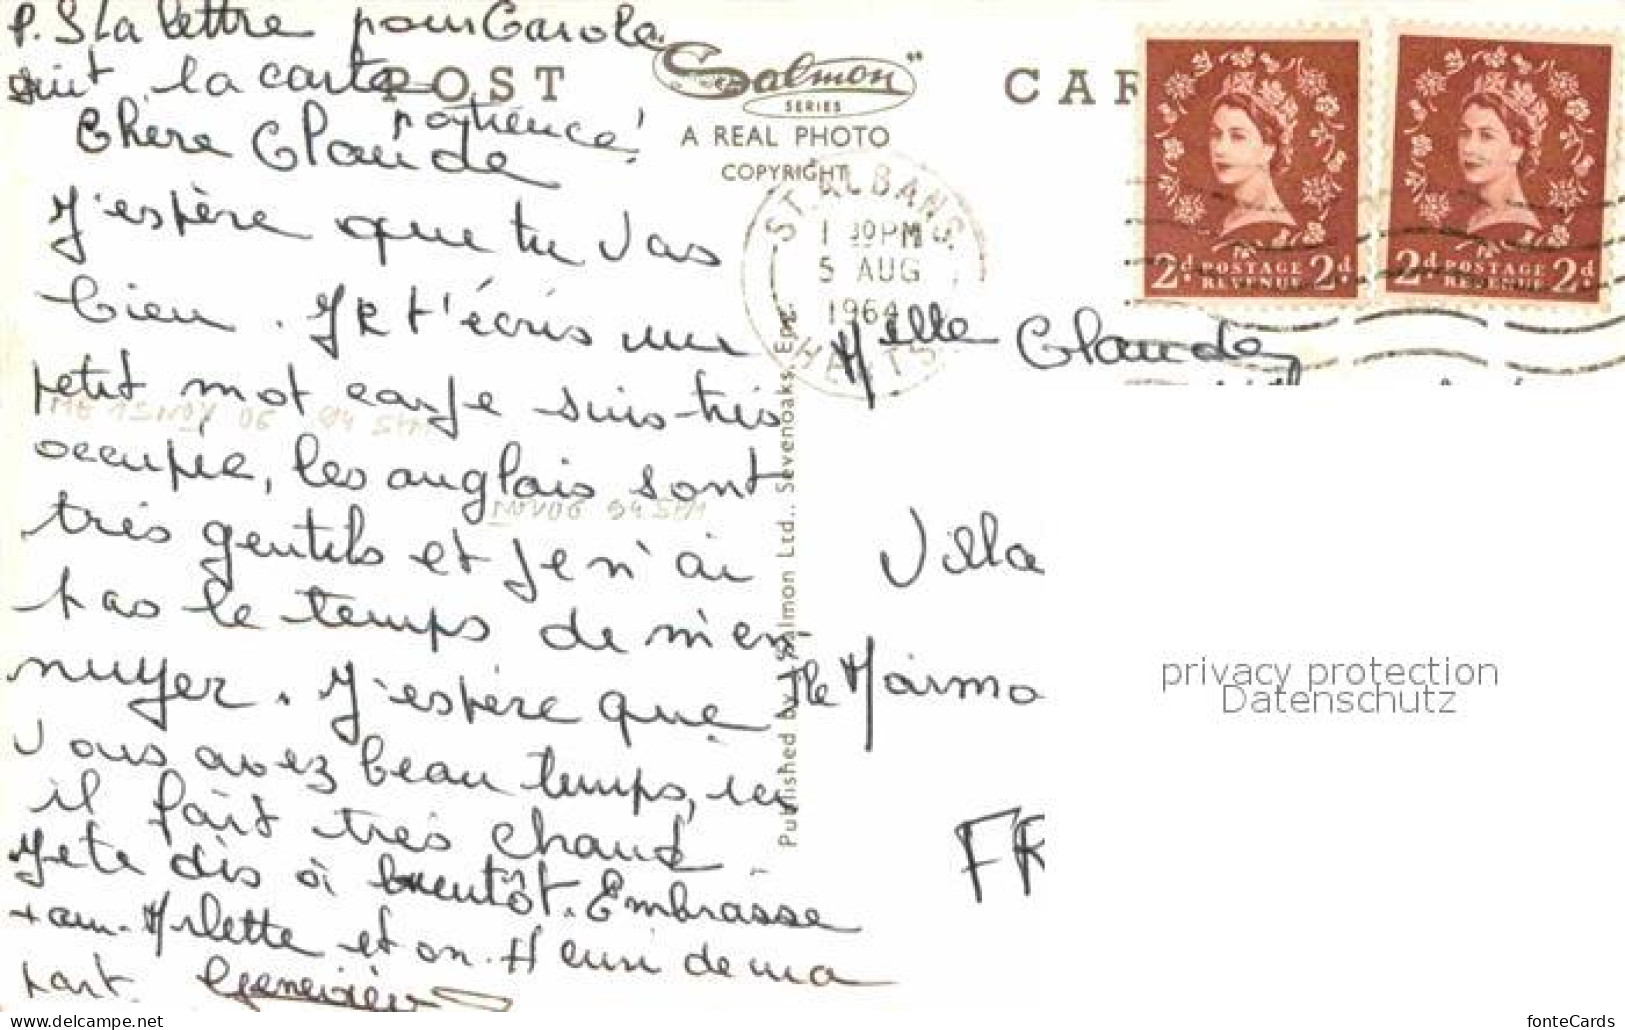 P.S la lettre pour Carole
suit la carte
patience!
POST CAR
Salmon
SERIES
A REAL PHOTO
COPYRIGHT
ST. ALBANS.
1 30PM
5 AUG
1964
HERTS
2d POSTAGE REVENUE 2d
2d POSTAGE REVENUE 2d
Chère Claude
J'espère que tu vas
bien. Je t'écris un
petit mot car je suis très
occupée, les anglais sont
très gentils et je n'ai
pas le temps de m'en-
nuyer. J'espère que
vous avez beau temps, ici
il fait très chaud
Je te dis à bientôt. Embrasse
Arlette et on. Henri de ma
part. Geneviève
Published by J. Salmon Ltd., Sevenoaks, Eng.
Melle Claude
Villa
Marmo
FR
privacy protection
Datenschutz
www.delcampe.net
fonteCards